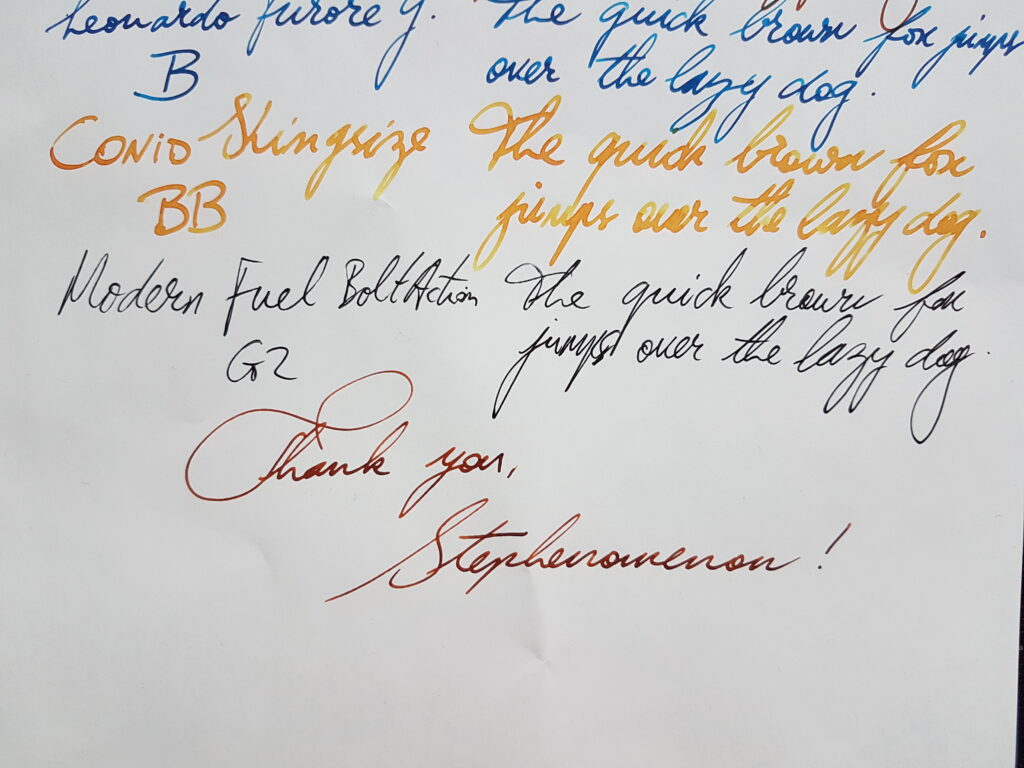 Leonardo Furore G. The quick brown fox jumps
B over the lazy dog.
CONID Kingsize The quick brown fox
BB jumps over the lazy dog.
Modern Fuel Bolt Action The quick brown fox
G2 jumps over the lazy dog.
Thank you,
Stephenomenon!